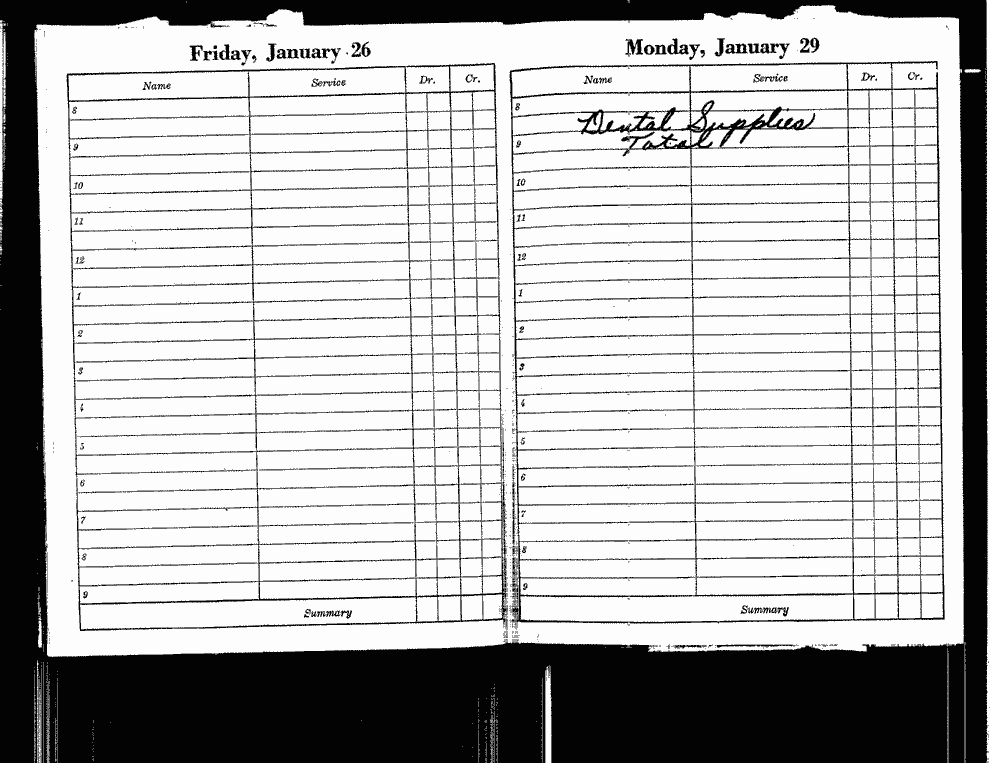 Friday, January 26
Name Service Dr. Cr.
8
9
10
11
12
1
2
3
4
5
6
7
8
9
Summary
Monday, January 29
Name Service Dr. Cr.
8
Dental Supplies
9 Total
10
11
12
1
2
3
4
5
6
7
8
9
Summary